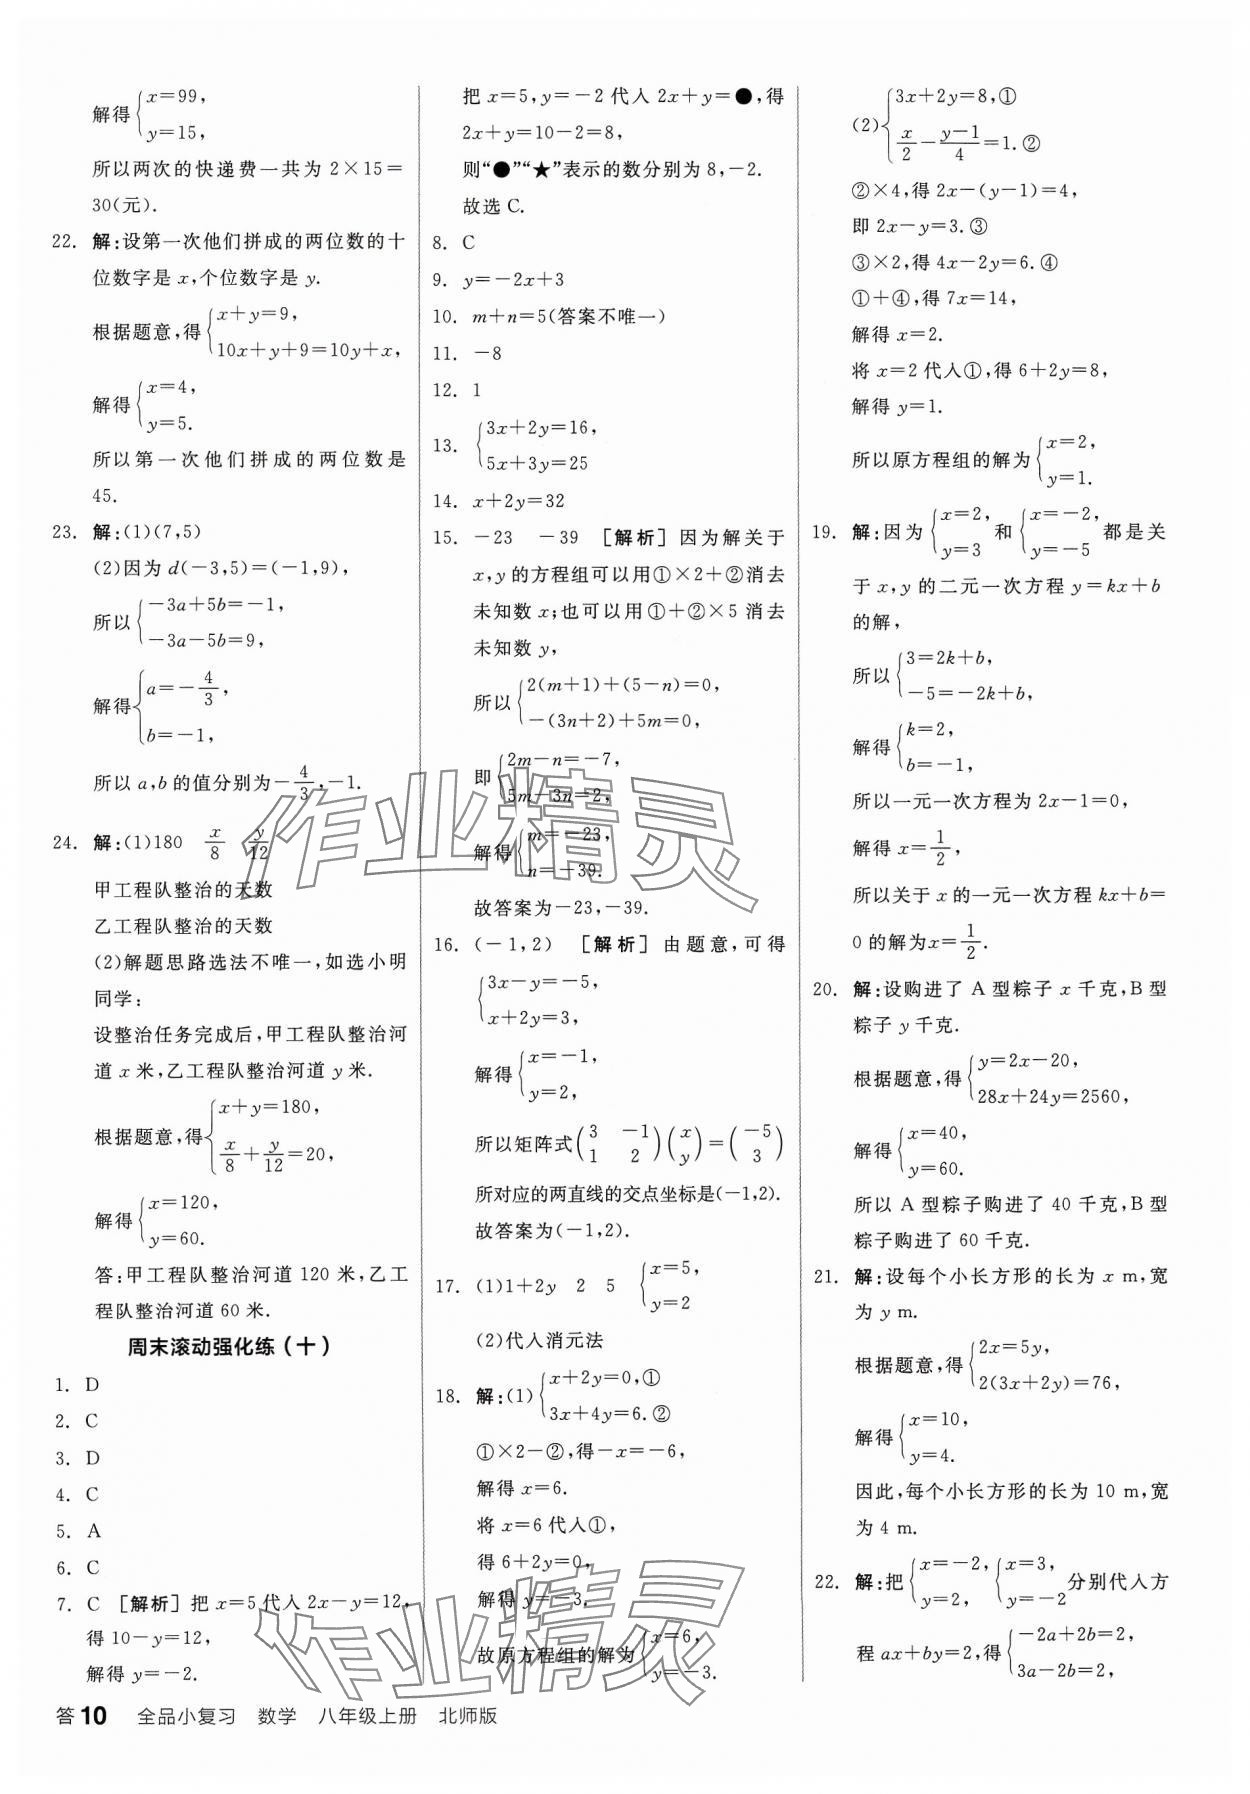 解得{x=99,
y=15,
所以两次的快递费一共为 2×15=
30(元).
22. 解:设第一次他们拼成的两位数的十
位数字是 x,个位数字是 y.
根据题意,得{x+y=9,
10x+y+9=10y+x,
解得{x=4,
y=5.
所以第一次他们拼成的两位数是
45.
23. 解:(1)(7,5)
(2)因为 d(-3,5)=(-1,9),
所以{-3a+5b=-1,
-3a-5b=9,
解得{a=-4/3,
b=-1,
所以 a,b 的值分别为-4/3,-1.
24. 解:(1)180 x/8 y/12
甲工程队整治的天数
乙工程队整治的天数
(2)解题思路选法不唯一,如选小明
同学:
设整治任务完成后,甲工程队整治河
道 x 米,乙工程队整治河道 y 米.
根据题意,得{x+y=180,
x/8+y/12=20,
解得{x=120,
y=60.
答:甲工程队整治河道 120 米,乙工
程队整治河道 60 米.
周末滚动强化练(十)
1. D
2. C
3. D
4. C
5. A
6. C
7. C [解析]把 x=5 代入 2x-y=12,
得 10-y=12,
解得 y=-2.
把 x=5,y=-2 代入 2x+y=●,得
2x+y=10-2=8,
则“●”“★”表示的数分别为 8,-2.
故选 C.
8. C
9. y=-2x+3
10. m+n=5(答案不唯一)
11. -8
12. 1
13. {3x+2y=16,
5x+3y=25
14. x+2y=32
15. -23 -39 [解析]因为解关于
x,y 的方程组可以用①×2+②消去
未知数 x;也可以用①+②×5 消去
未知数 y,
所以{2(m+1)+(5-n)=0,
-(3n+2)+5m=0,
即{2m-n=-7,
5m-3n=2,
解得{m=-23,
n=-39.
故答案为-23,-39.
16. (-1,2) [解析]由题意,可得
{3x-y=-5,
x+2y=3,
解得{x=-1,
y=2,
所以矩阵式(3 -1)(x)=(-5)
(1 2)(y) (3)
所对应的两直线的交点坐标是(-1,2).
故答案为(-1,2).
17. (1)1+2y 2 5 {x=5,
y=2
(2)代入消元法
18. 解:(1){x+2y=0,①
3x+4y=6.②
①×2-②,得-x=-6,
解得 x=6.
将 x=6 代入①,
得 6+2y=0,
解得 y=-3,
故原方程组的解为{x=6,
y=-3.
(2){3x+2y=8,①
x/2-(y-1)/4=1.②
②×4,得 2x-(y-1)=4,
即 2x-y=3.③
③×2,得 4x-2y=6.④
①+④,得 7x=14,
解得 x=2.
将 x=2 代入①,得 6+2y=8,
解得 y=1.
所以原方程组的解为{x=2,
y=1.
19. 解:因为{x=2, y=3 和{x=-2, y=-5 都是关
于 x,y 的二元一次方程 y=kx+b
的解,
所以{3=2k+b,
-5=-2k+b,
解得{k=2,
b=-1,
所以一元一次方程为 2x-1=0,
解得 x=1/2,
所以关于 x 的一元一次方程 kx+b=
0 的解为x=1/2.
20. 解:设购进了 A 型粽子 x 千克,B 型
粽子 y 千克.
根据题意,得{y=2x-20,
28x+24y=2560,
解得{x=40,
y=60.
所以 A 型粽子购进了 40 千克,B 型
粽子购进了 60 千克.
21. 解:设每个小长方形的长为 x m,宽
为 y m.
根据题意,得{2x=5y,
2(3x+2y)=76,
解得{x=10,
y=4.
因此,每个小长方形的长为 10 m,宽
为 4 m.
22. 解:把{x=-2, y=2,{x=3, y=-2分别代入方
程 ax+by=2,得{-2a+2b=2,
3a-2b=2,
答 10 全品小复习 数学 八年级上册 北师版
作业精灵
作业精灵